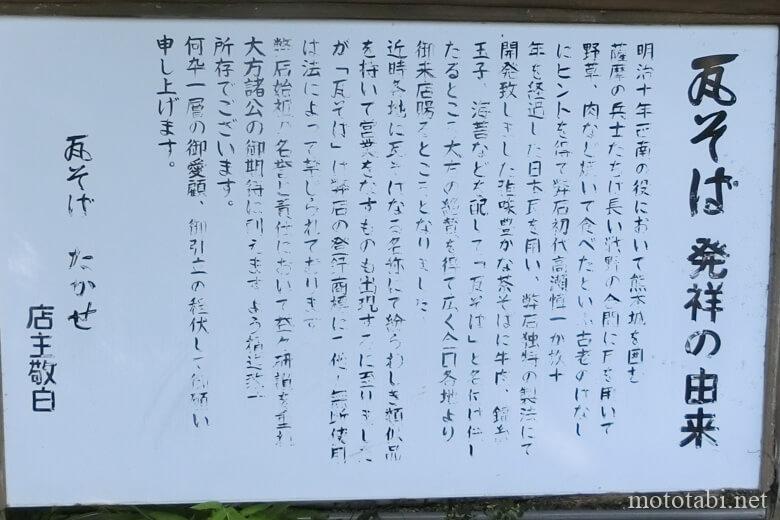 瓦そば 発祥の由来
明治十年西南の役において熊本城を囲む
薩摩の兵士たちは長い戦野の合間に瓦を用いて
野草、肉など焼いて食べたという古老のはなし
にヒントを得て弊店初代高瀬慎一が数十
年を経過した日本瓦を用い、弊店独特の製法にて
開発致しました滋味豊かな茶そばに牛肉、錦糸
玉子、海苔などを配して「瓦そば」と名付け供し
たるところ大方の絶賛を得て広く全国各地より
御来店賜るところとなりました
近時各地に瓦そばなる名称にて紛らわしき類似品
を持いて営業をなすものも出現するに至りました
が「瓦そば」は弊店の登録商標に一他の無断使用
は法によって禁じられております
弊店始祖の名誉と責任において益々研鑽を重ね
大方諸公の御期待に副えますよう
所存でございます。
何卒一層の御愛顧、御引立の程伏して御願い
申し上げます。
瓦そば たかせ
店主敬白
mototabi.net